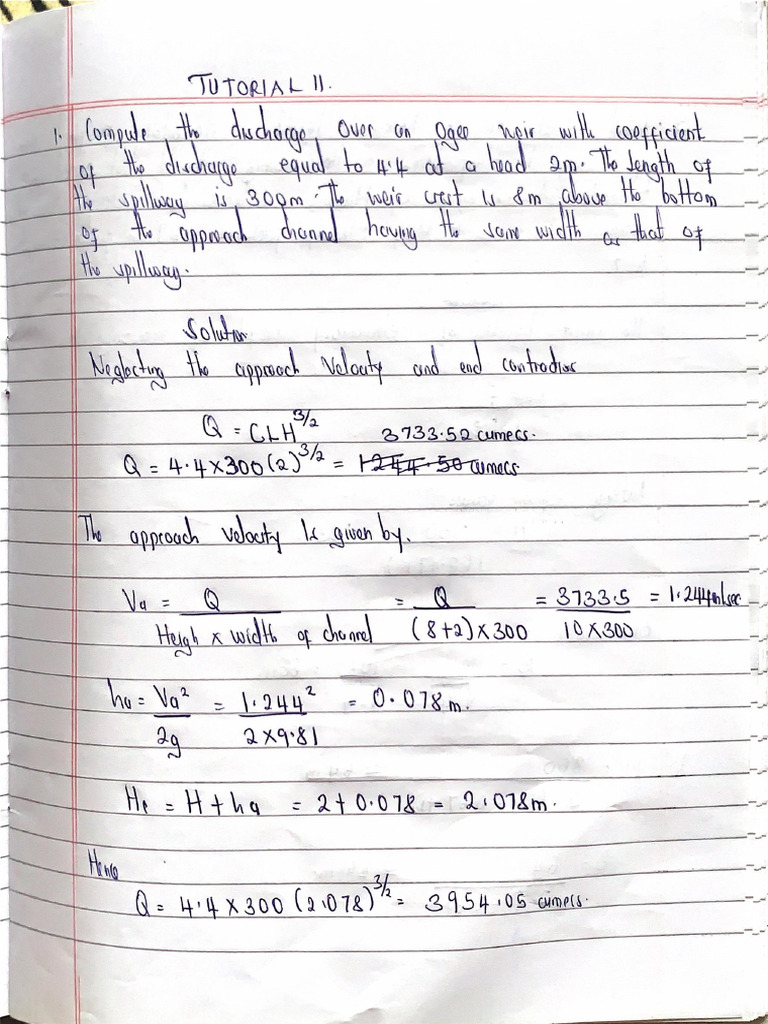 TUTORIAL 11.
1. Compute the discharge over an Ogee weir with coefficient
of the discharge equal to 4.4 at a head 2m. The length of
the spillway is 300m. The weir crest is 8m above the bottom
of the approach channel having the same width as that of
the spillway.
Solution
Neglecting the approach velocity and end contractions
Q = CLH^3/2 3733.52 cumecs.
Q = 4.4 × 300 (2)^3/2 = 1244.50 cumecs
The approach velocity is given by.
Va = Q = Q = 3733.5 = 1.244m/sec
Heigh × width of channel (8+2) × 300 10 × 300
ha = Va² = 1.244² = 0.078m.
2g 2 × 9.81
He = H + ha = 2 + 0.078 = 2.078m.
Hence
Q = 4.4 × 300 (2.078)^3/2 = 3954.05 cumecs.